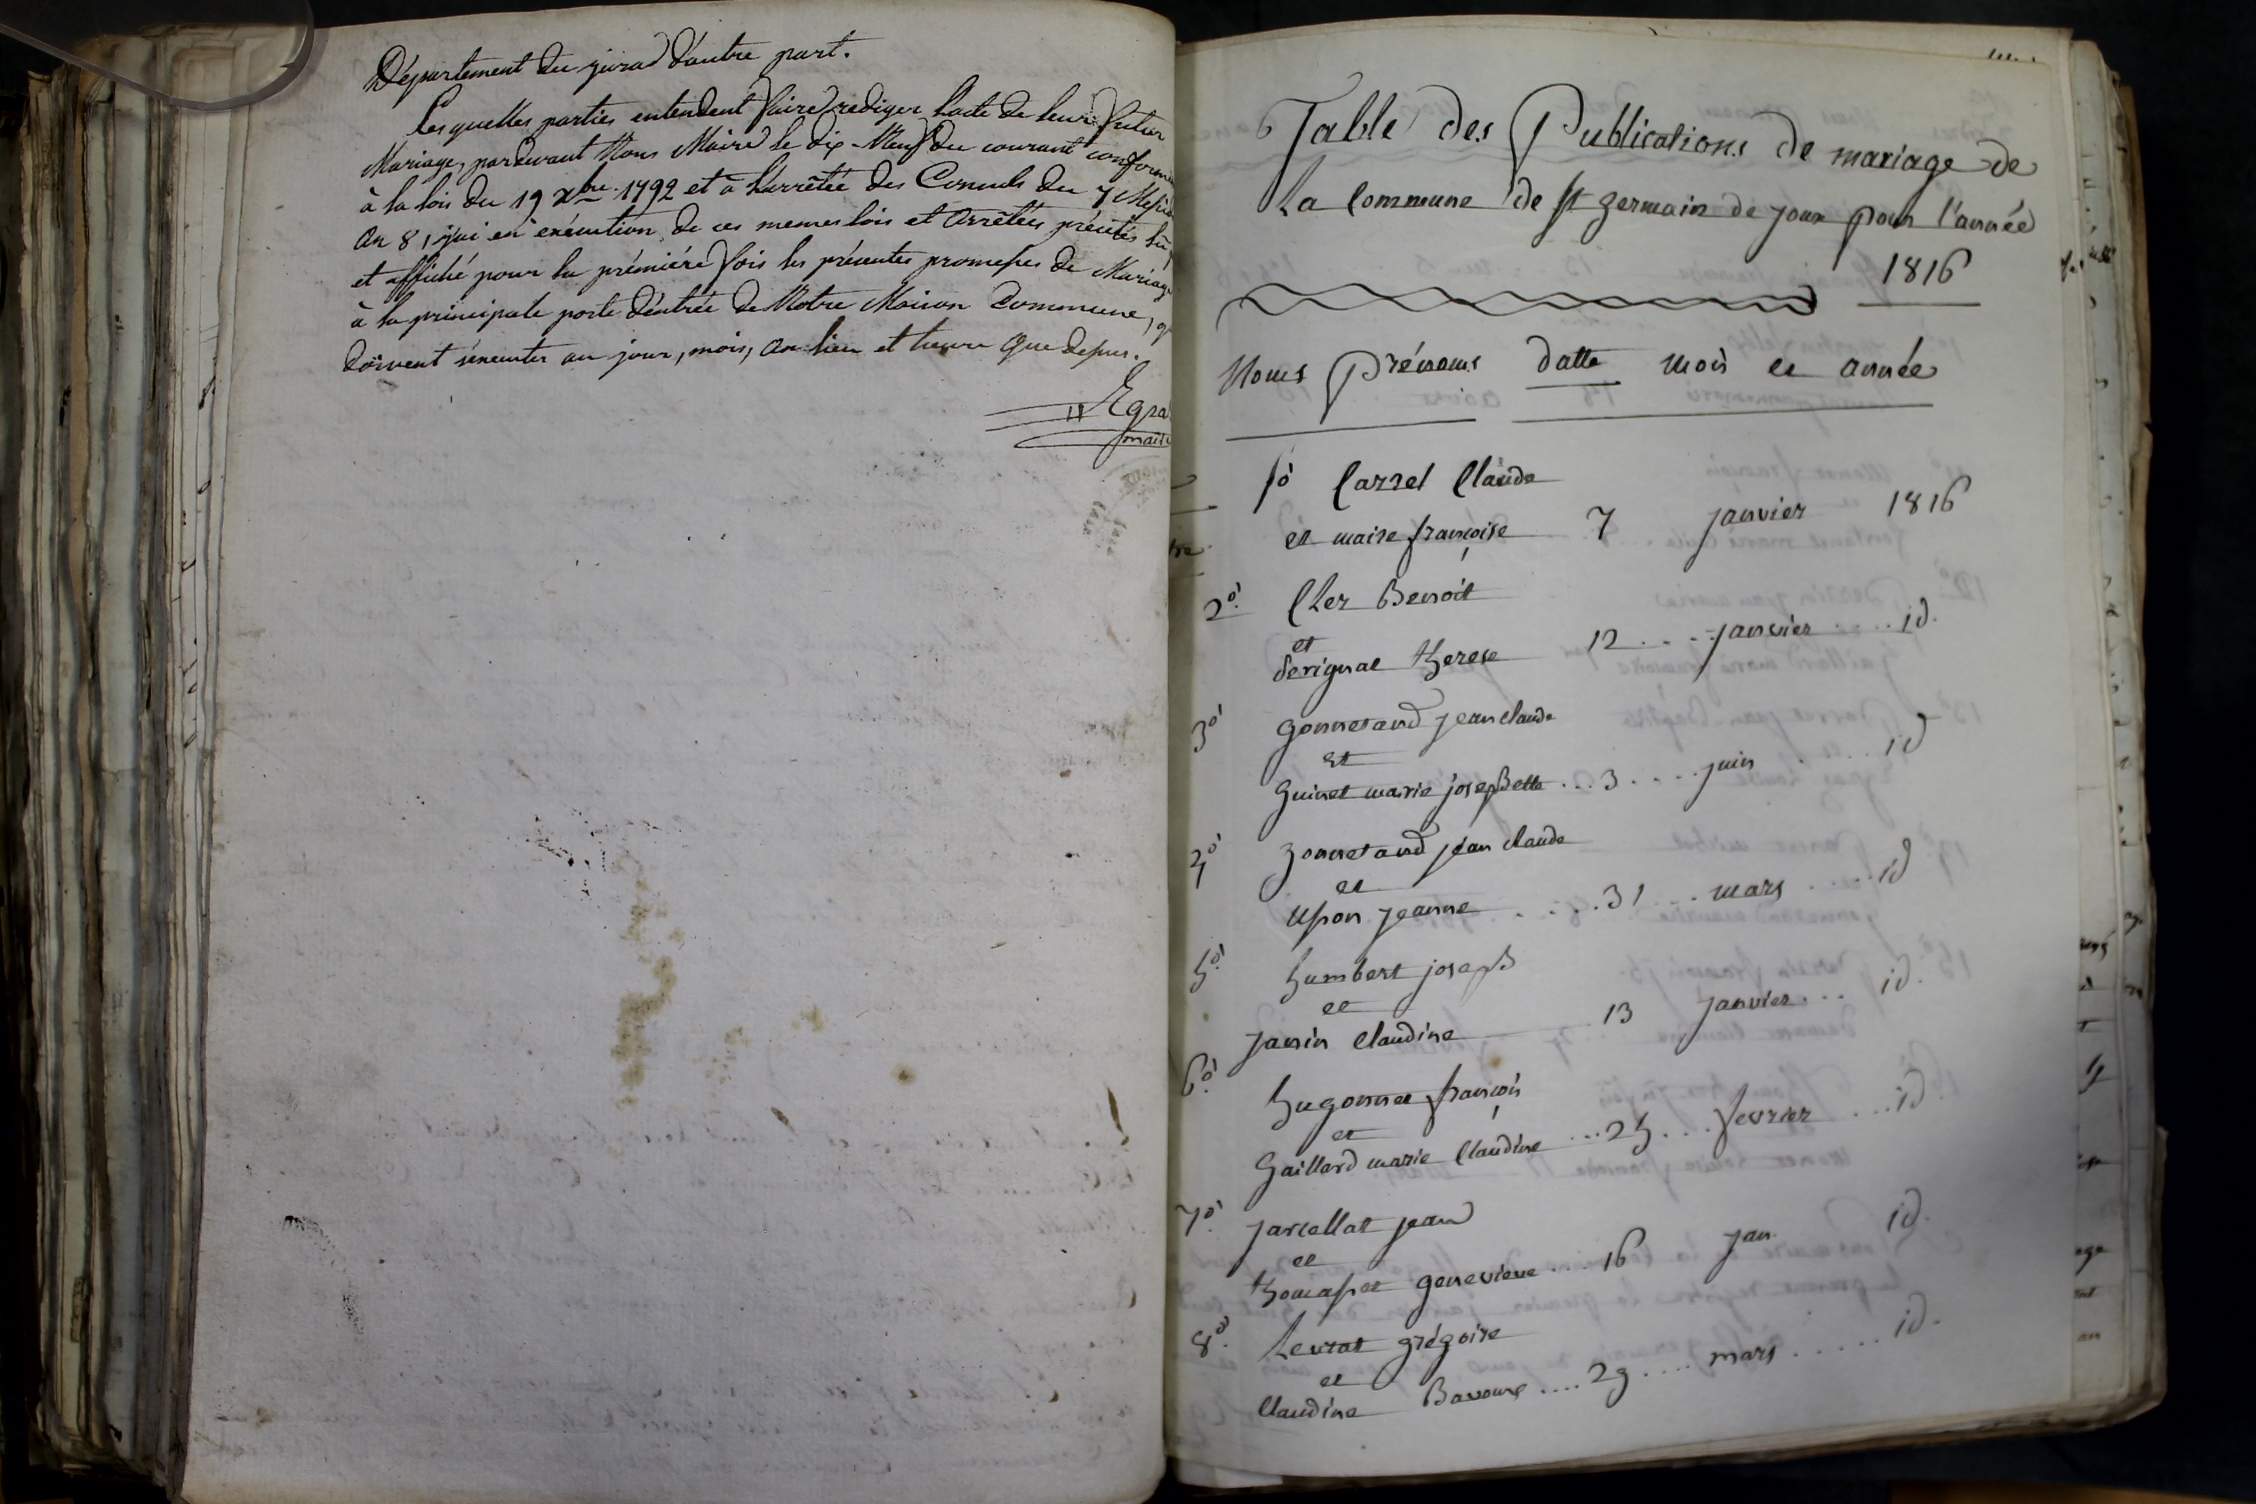 Département du jura d'autre part.
Lesquelles parties entendent faire rediger l'acte de leur futur
Mariage, pardevant Nous Maire le dix-Neuf du courant conforme
à la loi du 19 xbre. 1792 et à l'arrêtée des Consuls du 7
An 8, j'ai en éxécution de ces memes lois et arrêtées précités lû,
et affiché pour la prémiére fois les présentes promesses de Mariage
à la principale porte d'éntrée de Notre Maison Commune,
doivent s'éxecuter au jour, mois, an lieu et heure que dessus.
Table des Publications de mariage de
La Commune de St germain de joux pour l'année
1816
Noms Prénoms datte mois et année
1o Carrel Claude
et maire françoise 7 janvier 1816
2o Cher Benoit
et
therese 12 .... janvier .... id.
3o gonnetand jean claude
et
guinet marie josephette ... 3 .... juin id
4o gonnetand jean claude
et
Usson jeanne .... 31 ... mars .... id
5o humbert joseph
et
janin Claudine 13 janvier ... id.
6o hugonnet françois
et
Gaillard marie Claudine ... 25 ... fevrier ... id
7o jarcellat jean
et
thomasset genevieve ... 16 jan id.
8o Levrat grégoire
et
Claudine .... 29 .... mars ..... id.